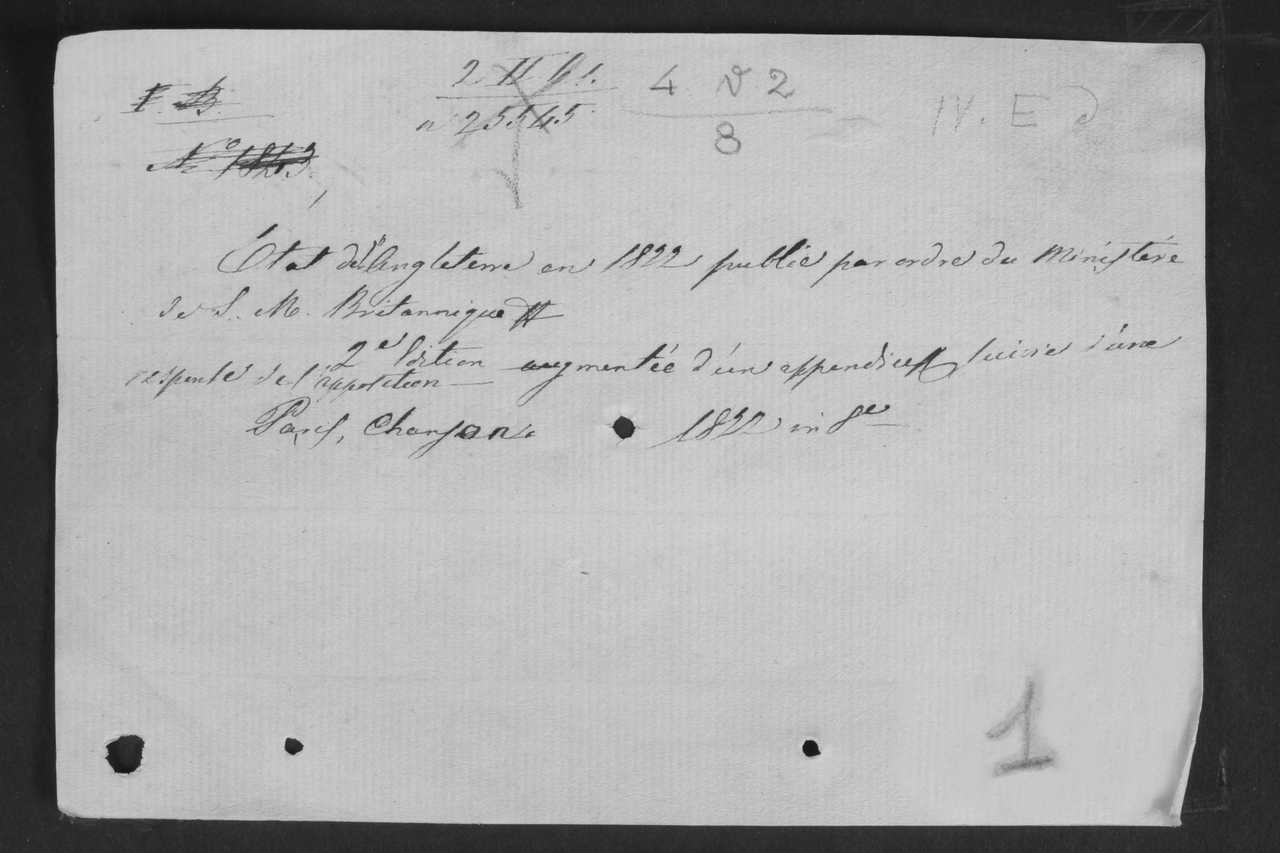 F. B. 2 H 61. 4 V 2 IV. E d
n 25545 8
N° 1843
État de l'Angleterre en 1822 publié par ordre du Ministère
de S. M. Britannique
2e Edition augmentée d'un appendice suivie d'une
de l'opposition
Paris, Chanson 1822 in 8e
1